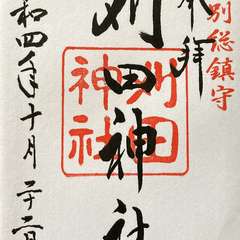 別総鎮守
奉拝
刈田神社
刈田
神社
和四年十月二十二日